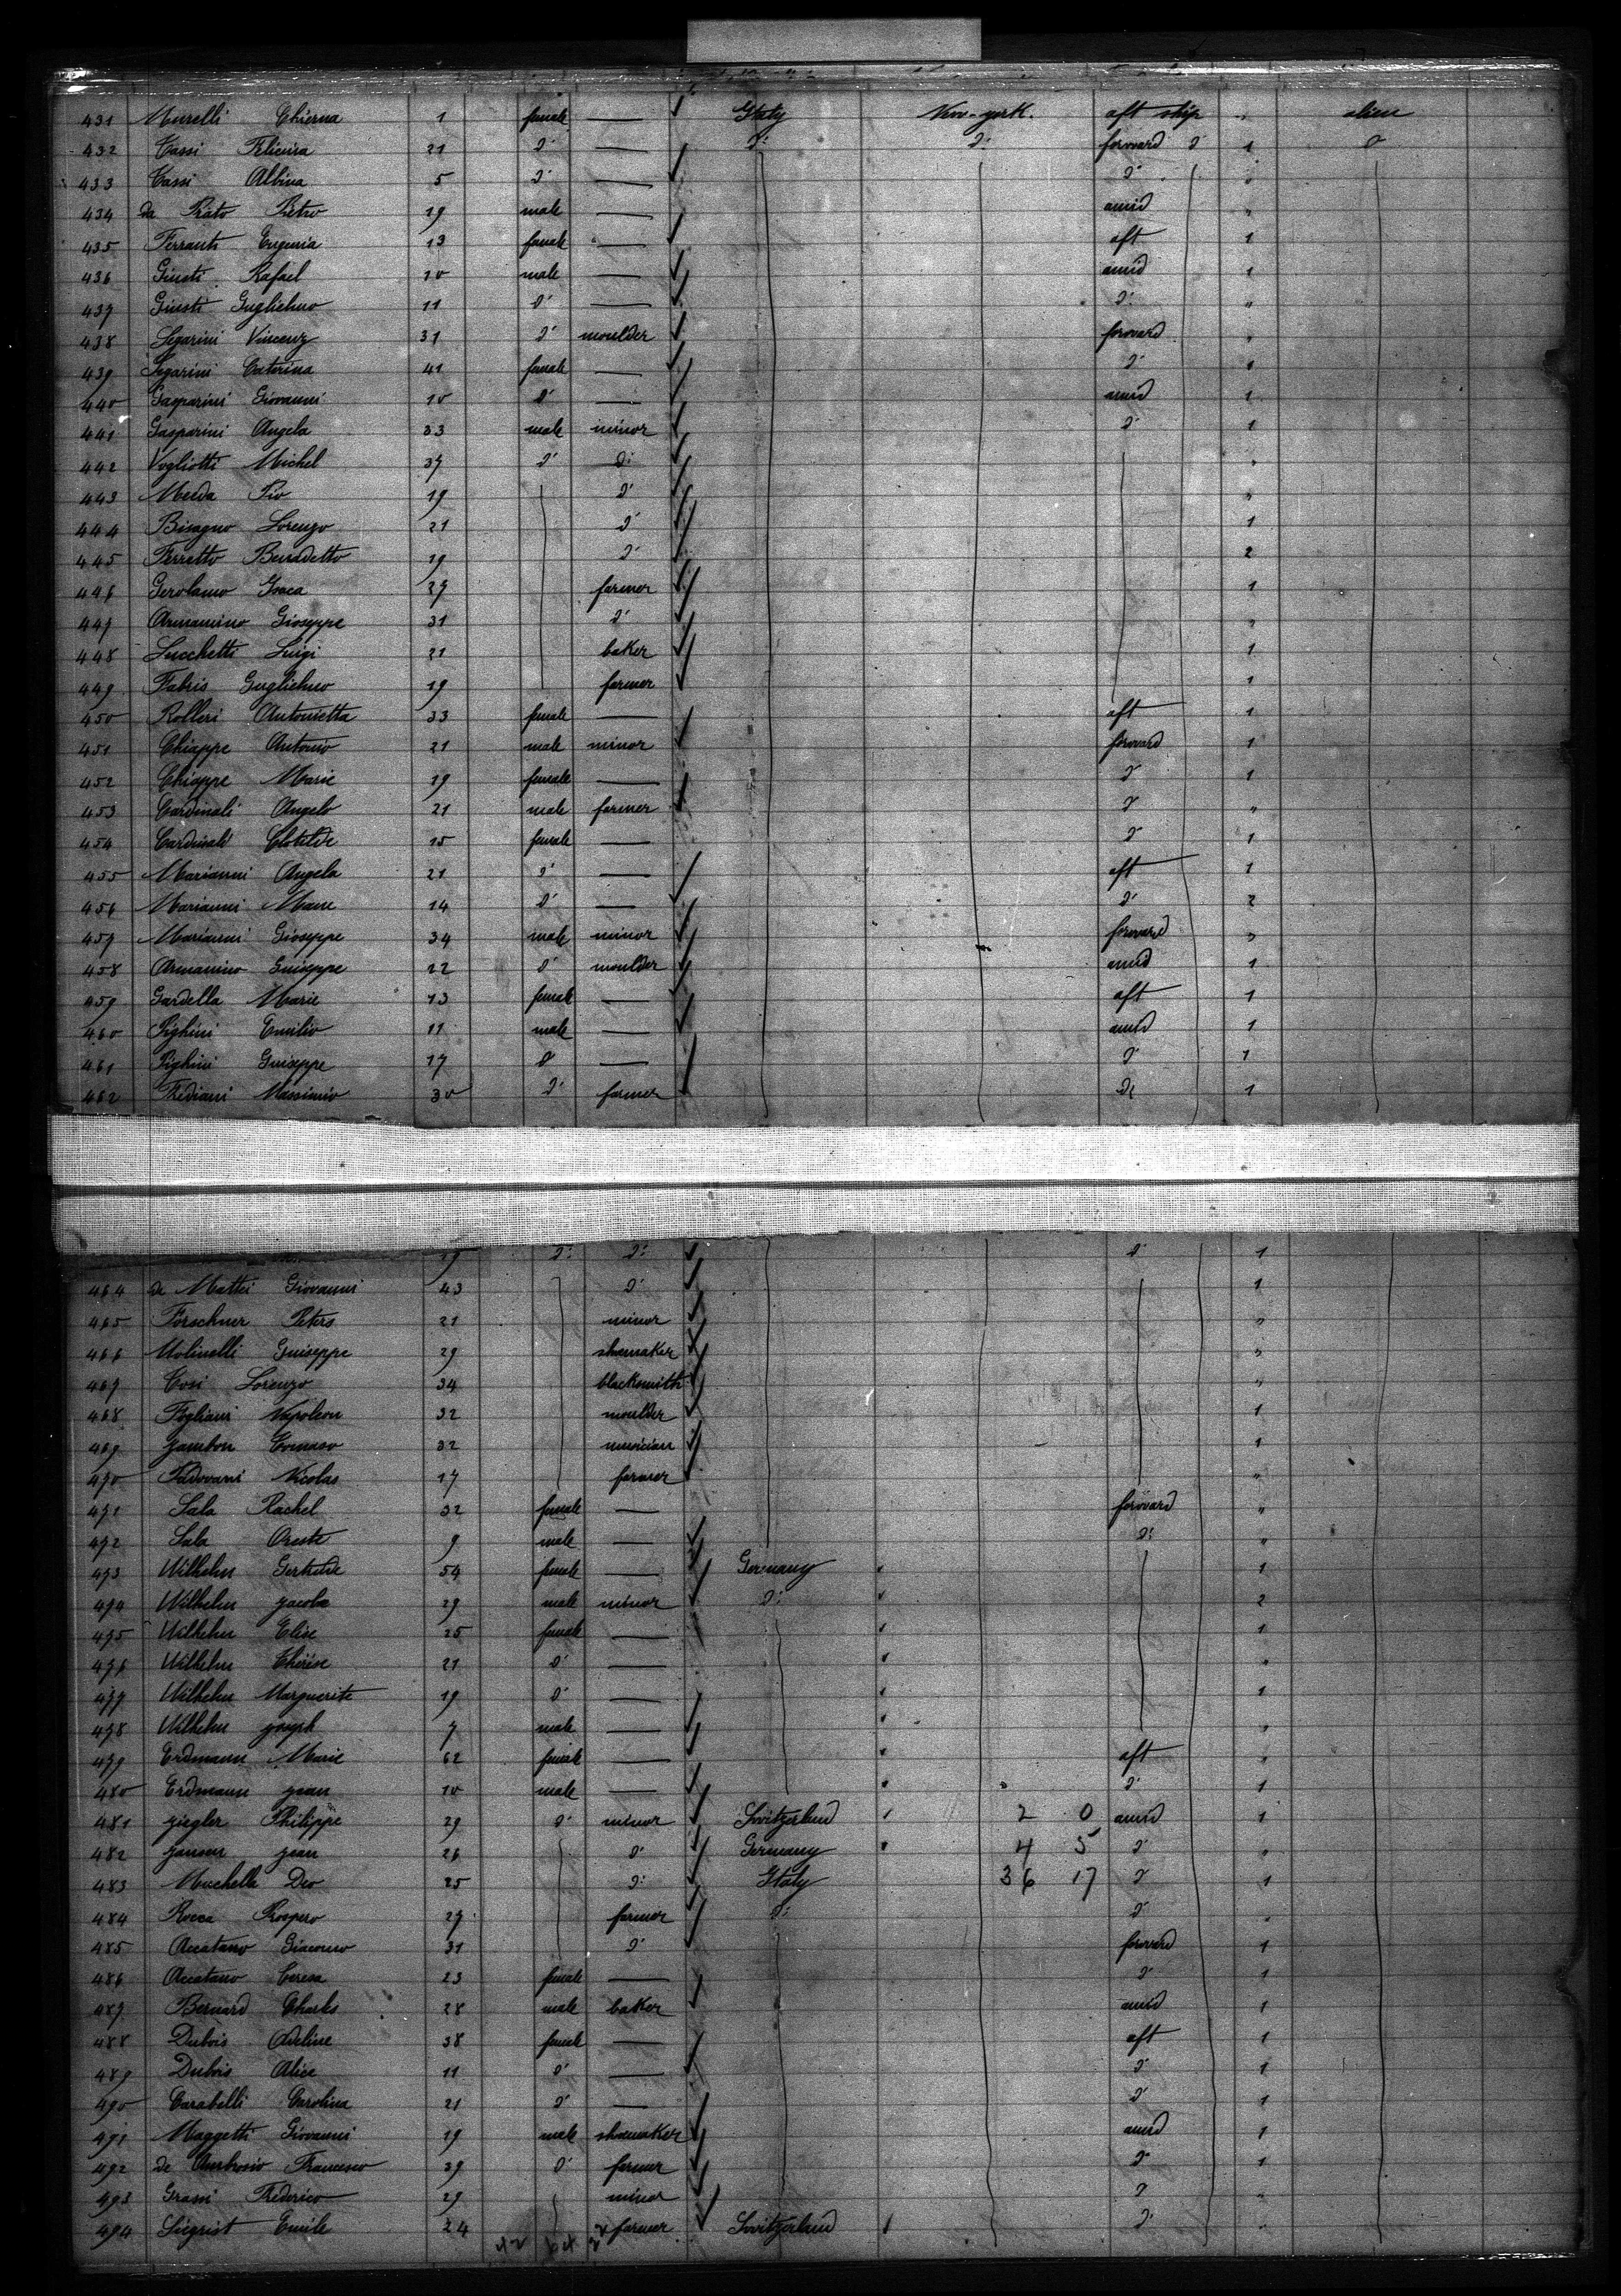 431 Murelli Chierna 1 female — Italy New-york. aft ship " alien
432 Cassi 21 d° — d° d° forward d° 1 d°
433 Cassi Albina 5 d° — d° "
434 da Prato Pietro 19 male — amid "
435 Ferranti Eugenia 13 female — aft 1
436 Giusti Rafael 10 male — amid 1
437 Giusti Guglielmo 11 d° — d° "
438 Segarini Vincenz 31 d° moulder forward "
439 Segarini Caterina 41 female — d° 1
440 Gasparini Giovanni 10 d° — amid 1
441 Gasparini Angela 33 male minor d° 1
442 Vogliotti Michel 37 d° d° "
443 Merda Pio 19 d° "
444 Bisagno Lorenzo 21 d° 1
445 Ferretto Benadetto 19 d° 2
446 Gerolamo Isaca 27 farmer 1
447 Armanino Gioseppe 31 d° "
448 Lucchetti Luigi 21 baker 1
449 Fabris Guglielmo 19 farmer 1
450 Rolleri Antonietta 33 female — aft 1
451 Chiappe Antonio 21 male minor forward 1
452 Chiappe Marie 19 female — d° 1
453 Cardinali Angelo 21 male farmer d° "
454 Cardinali Clotilde 15 female — d° 1
455 Marianni Angela 21 d° — aft 1
456 Marianni Marie 14 d° — d° 2
457 Marianni Gioseppe 34 male minor forward "
458 Armanino Guiseppe 22 d° moulder amid 1
459 Gardella Marie 13 female — aft 1
460 Pighini Emilio 11 male — amid 1
461 Pighini Guiseppe 17 d° — d° 1
462 Frediani Massimio 30 d° farmer d° 1
19 d° d° d° 1
464 de Mattei Giovanni 43 d° 1
465 Förschner Peters 21 minor "
466 Molinelli Guiseppe 29 shoemaker "
467 Cosi Lorenzo 34 blacksmith "
468 Fogliani Napoleon 32 moulder 1
469 Zambon Tomaso 32 musician 1
470 Padovani Nicolas 17 farmer "
471 Sala Rachel 32 female — forward "
472 Sala Oreste 9 male — d° "
473 Wilhelm 54 female — Germany 1
474 Wilhelm Jacob 29 male minor d° 2
475 Wilhelm Elise 25 female — 1
476 Wilhelm Thérèse 21 d° — "
477 Wilhelm Marguerite 19 d° — 1
478 Wilhelm Joseph 7 male — "
479 Erdmann Marie 62 female — aft "
480 Erdmann Jean 10 male — d° 1
481 Ziegler Philippe 29 d° minor Switzerland 2 0 amid 1
482 Jansen Jean 26 d° Germany 4 5 d° "
483 Mochella Deo 25 d° Italy 36 17 d° 1
484 Rocca Prospero 27 farmer d° d° "
485 Accatano Giacomo 31 d° forward 1
486 Accatano Teresa 23 female — d° 1
487 Bernard Charles 28 male baker amid 1
488 Dubois Adeline 38 female — aft 1
489 Dubois Alice 11 d° — d° 1
490 Carabelli Carolina 21 d° — d° 1
491 Maggetti Giovanni 19 male shoemaker amid 1
492 de Ambrosio Francesco 39 d° farmer d° 1
493 Grassi Frederico 29 minor d° "
494 Siegrist Emile 24 farmer Switzerland d° "